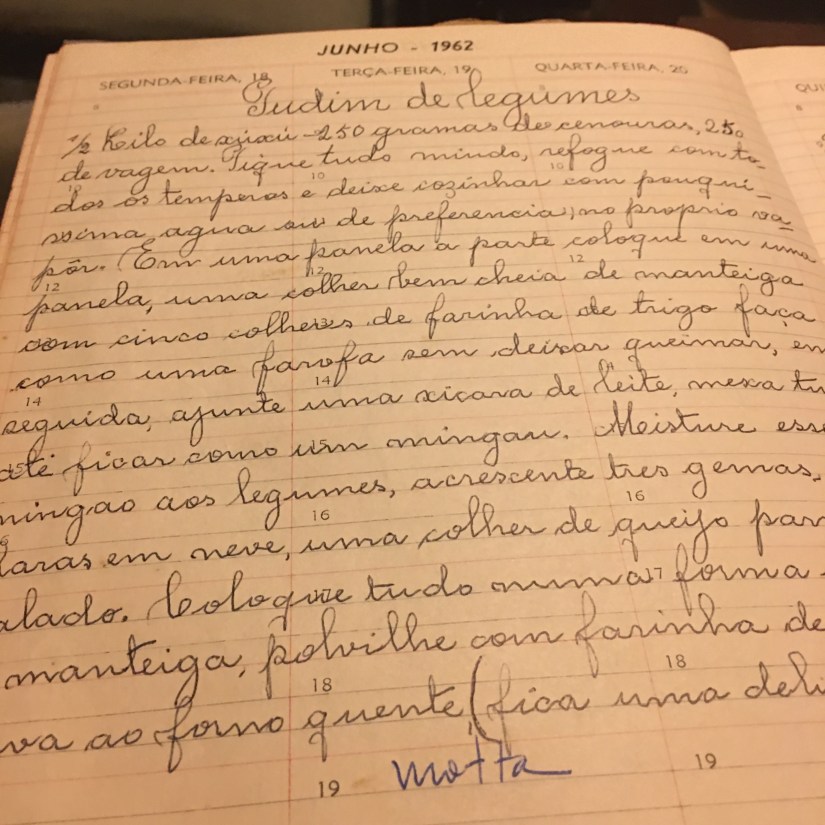 JUNHO - 1962
SEGUNDA-FEIRA, 18 TERÇA-FEIRA, 19 QUARTA-FEIRA, 20
Pudim de legumes
1/2 kilo de xixú - 250 gramas de cenouras, 250
de vagem. Pique tudo miudo, refogue com to-
dos os temperos e deixe cozinhar com pouqui-
ssima agua ou de preferencia, no proprio va-
pôr. Em uma panela a parte coloque em uma
panela, uma colher bem cheia de manteiga
com cinco colheres de farinha de trigo faça
como uma farofa sem deixar queimar, em
seguida, ajunte uma xicara de leite, mexa tu
até ficar como um mingau. Misture esse
mingao aos legumes, acrescente tres gemas,
laras em neve, uma colher de queijo par
alado. Coloque tudo numa forma
manteiga, polvilhe com farinha de
va ao forno quente (fica uma deli
motta